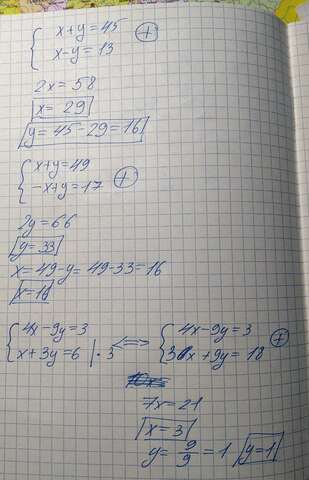 { x+y=45 (+)
x-y=13
2x=58
x=29
y=45-29=16
{ x+y=49
-x+y=17 (+)
2y=66
y=33
x=49-y=49-33=16
x=16
{ 4x-9y=3 <=> { 4x-9y=3
x+3y=6 |·3 3x+9y=18 (+)
7x=21
x=3
y=9/9=1 y=1